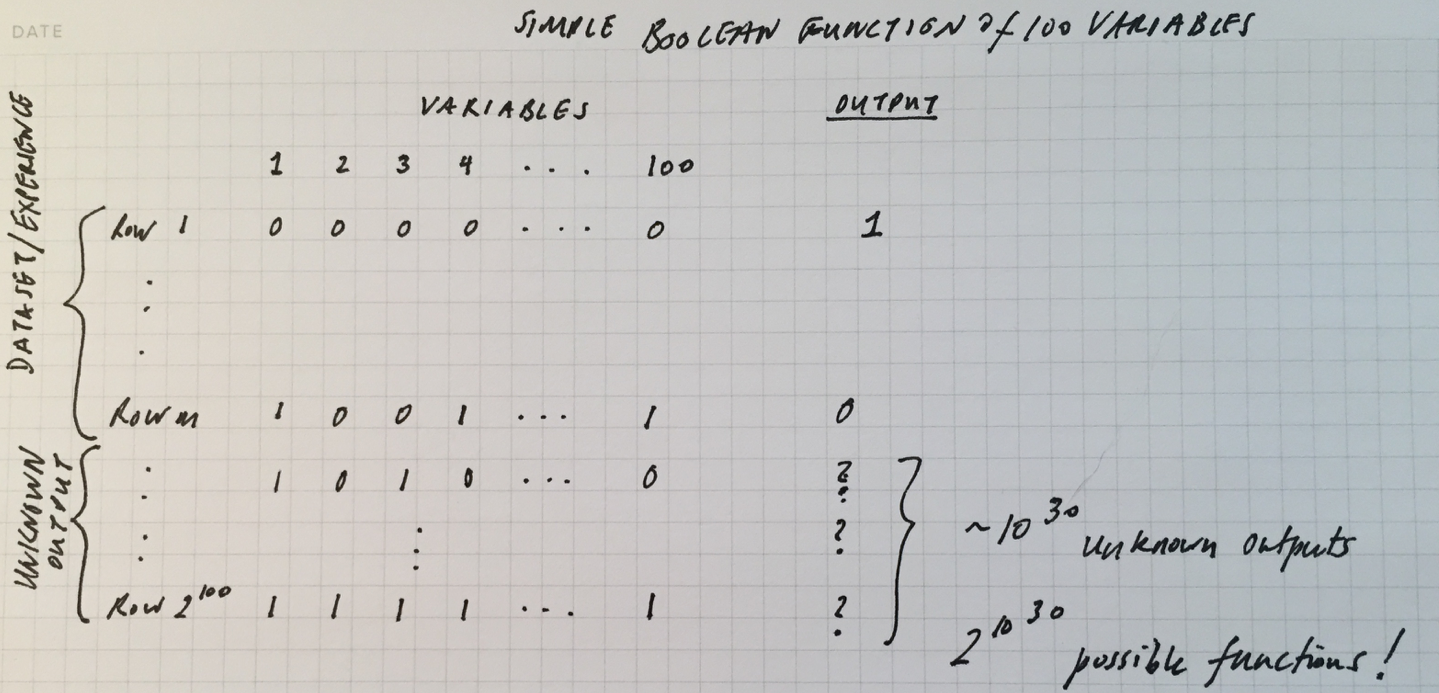 DATE
SIMPLE BOOLEAN FUNCTION of 100 VARIABLES
VARIABLES OUTPUT
1 2 3 4 ... 100
DATASET/EXPERIENCE
Row 1 0 0 0 0 ... 0 1
Row m 1 0 0 1 ... 1 0
UNKNOWN OUTPUT
1 0 1 0 ... 0 ?
?
~10^30 unknown outputs
Row 2^100 1 1 1 1 ... 1 ?
2^10^30 possible functions!